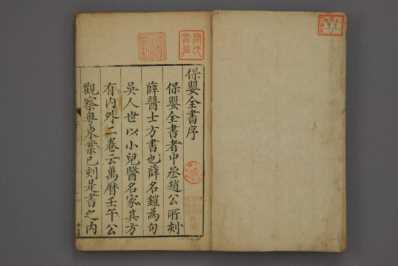 保嬰全書序
保嬰全書者中丞趙公所刻
薛醫士方書也薛名鎧為句
吳人世以小兒醫名家其方
有內外二卷云萬曆壬午公
觀察粵東業已刻是書之內